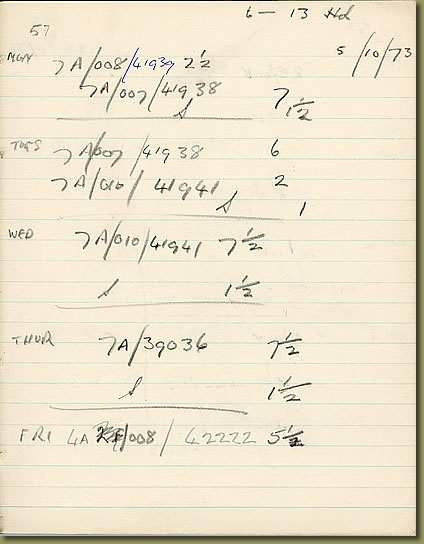 6 — 13 Hd
57
5/10/73
MON 7A/008/41939 2½
7A/007/41938 7
S 1½
TUES 7A/007/41938 6
7A/010/41941 2
S 1
WED 7A/010/41941 7½
S 1½
THUR 7A/39036 7½
S 1½
FRI 4A /008/42222 5½